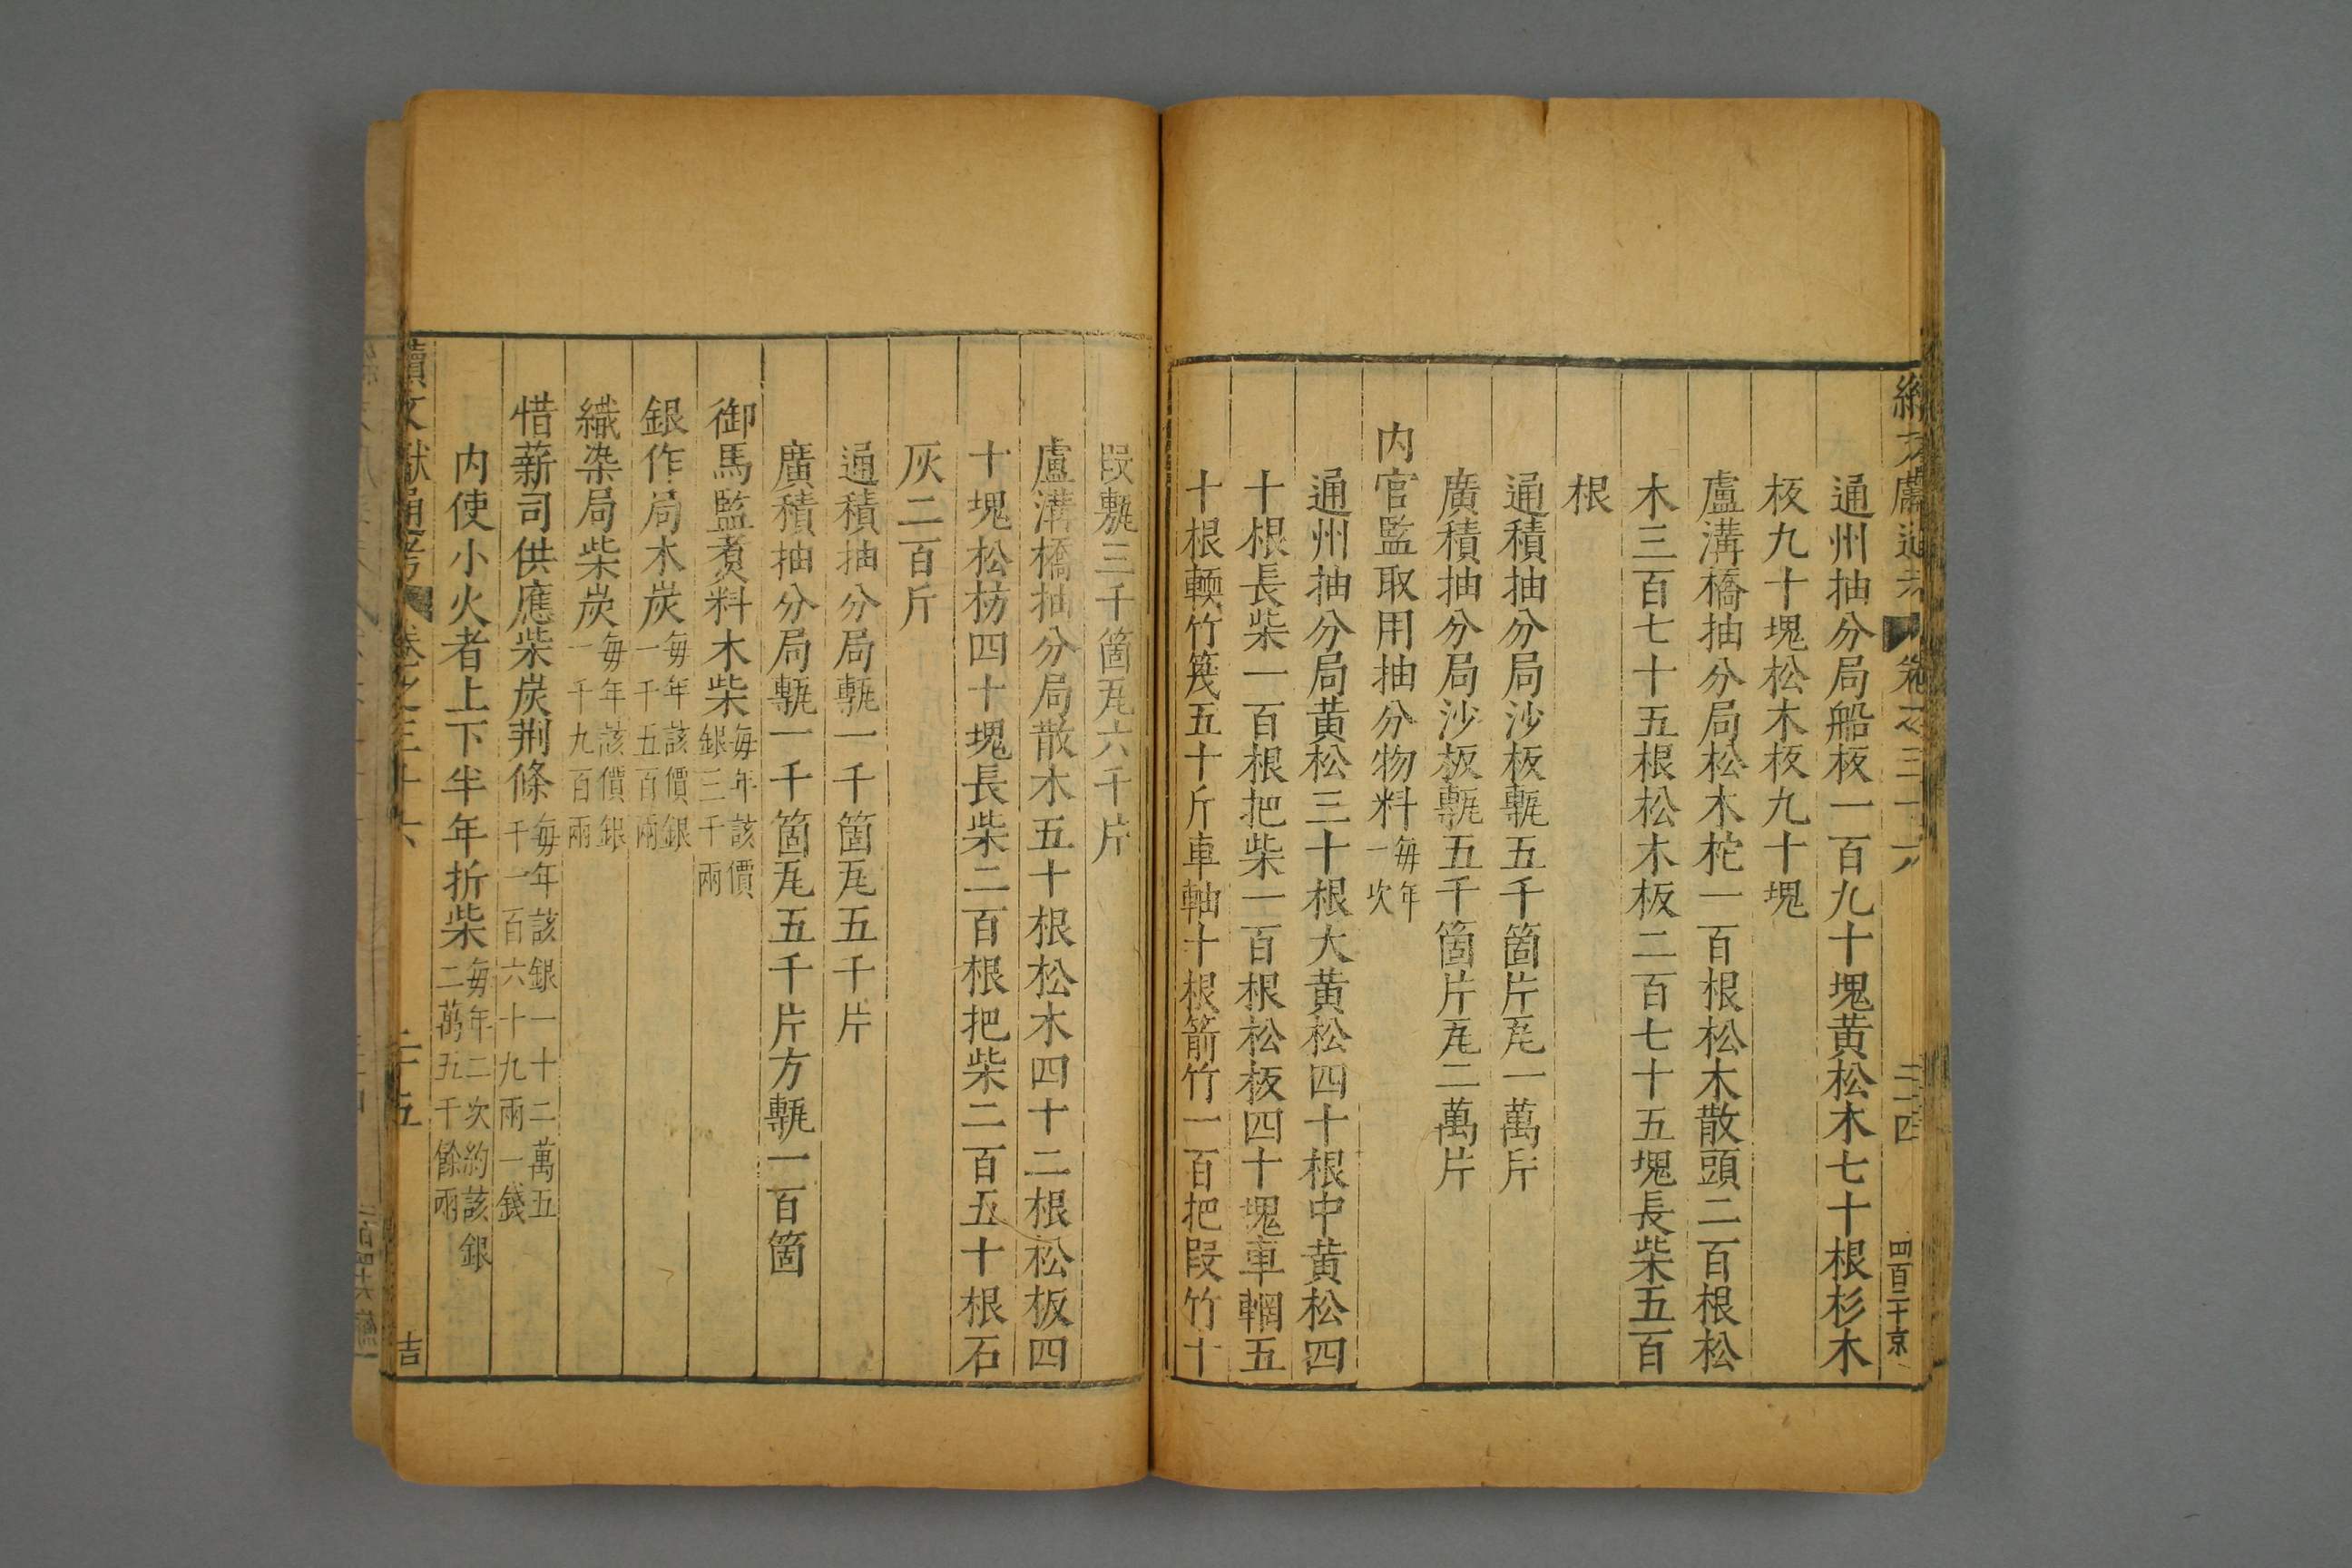 續文獻通考 卷之三十六 二十四 四百三十京
通州抽分局船板一百九十塊黄松木七十根杉木
板九十塊松木板九十塊
盧溝橋抽分局松木柁一百根松木散頭二百根松
木三百七十五根松木板二百七十五塊長柴五百
根
通積抽分局沙板甎五千箇片瓦一萬斤
廣積抽分局沙板甎五千箇片瓦二萬片
内官監取用抽分物料每年一次
通州抽分局黄松三十根大黄松四十根中黄松四
十根長柴一百根把柴一百根松板四十塊車輞五
十根頓竹篾五十斤車軸十根箭竹一百把段竹十
段甎三千箇瓦六千片
盧溝橋抽分局散木五十根松木四十二根松板四
十塊松枋四十塊長柴二百根把柴二百五十根石
灰二百斤
通積抽分局甎一千箇瓦五千片
廣積抽分局甎一千箇瓦五千片方甎一百箇
御馬監煑料木柴每年該價銀三千兩
銀作局木炭每年該價銀一千五百兩
織染局柴炭每年該價銀一千九百兩
惜薪司供應柴炭荆條每年該銀一十二萬五千一百六十九兩一錢
内使小火者上下半年折柴每年二次約該銀二萬五千餘兩
續文獻通考 卷之三十六 二十五 吉